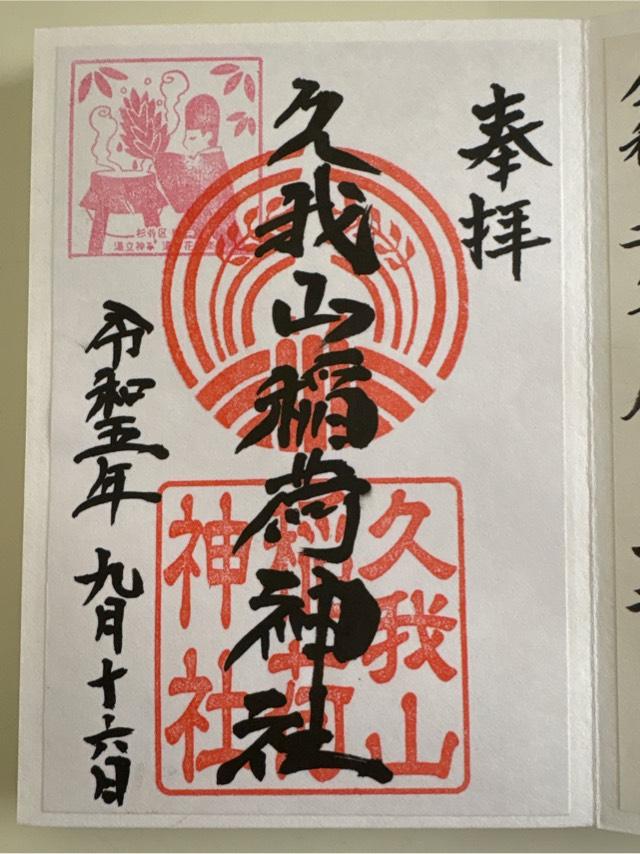 奉拝
久我山稲荷神社
令和五年 九月十六日
久我山
稲荷
神社
杉並区
湯立神事